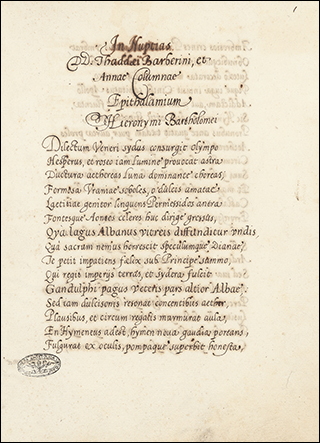 In Nuptias
DD. Thaddei Barberini, et
Annae Columnae
Epithalamium
Hieronymi Bartholomei
Dilectum Veneri sydus consurgit olympo
Hesperus, et roseo iam lumine prouocat astra
Ductura aethereas Luna dominante choreas,
Formosa Vraniae soboles, o dulcis amatae
Laetitiae genitor linquens Permessidos antra
Fontesque Aonios celeres huc dirige gressus,
Qua lagus Albanus vitreis diffunditur vndis
Qua sacrum nemus horrescit speculumque Dianae,
Te petit impatiens foelix sub Principe summo,
Qui regit imperijs terras, et sydera fulcit
Gandulphi pagus veteris pars altior Albae.
Sed iam dulcisonis resonat concentibus aether,
Plausibus, et circum regalis murmurat aula,
En Hymeneus adest, hymen noua gaudia portans,
Fulgurat ex oculis, pompaque superbit honesta,